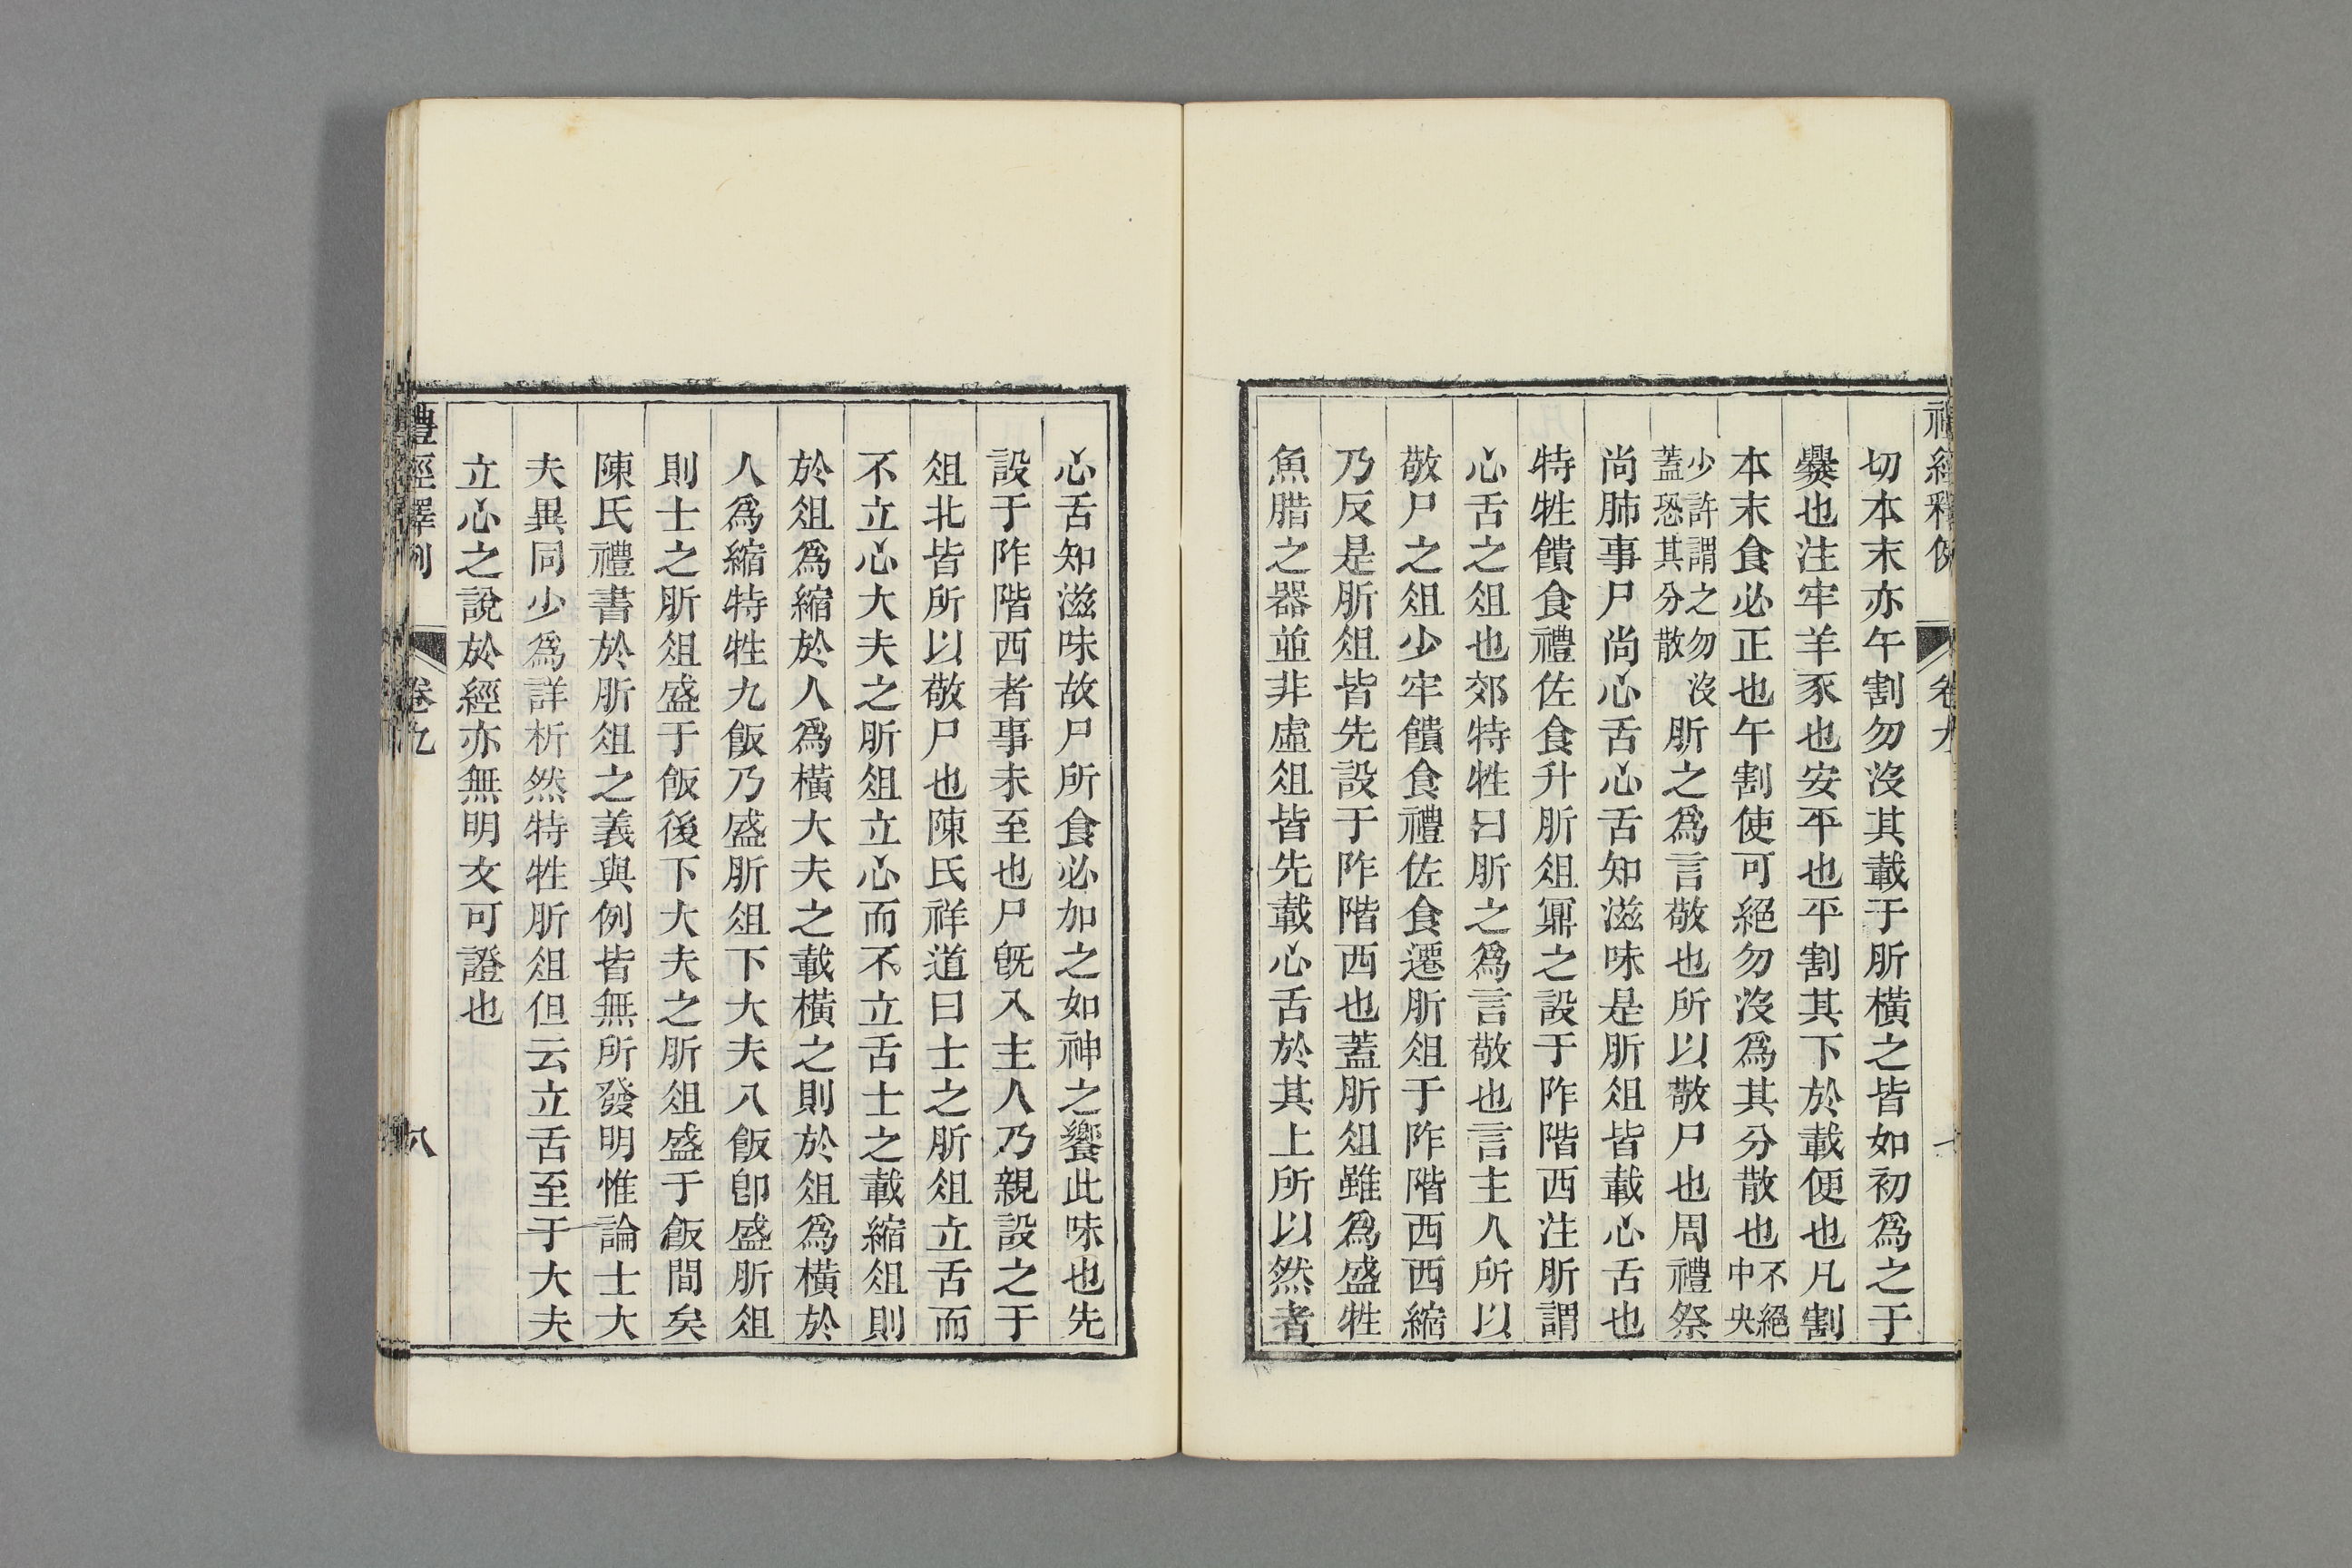 切本末亦午割勿沒其載于肵橫之皆如初爲之于
爨也注牢羊豕也安平也平割其下於載便也凡割
本末食必正也午割使可絕勿沒爲其分散也不絕中央
少許謂之勿沒蓋恐其分散肵之爲言敬也所以敬尸也周禮祭
尚肺事尸尚心舌心舌知滋味是肵俎皆載心舌也
特牲饋食禮佐食升肵俎鼏之設于阼階西注肵謂
心舌之俎也郊特牲曰肵之爲言敬也言主人所以
敬尸之俎少牢饋食禮佐食遷肵俎于阼階西西縮
乃反是肵俎皆先設于阼階西也蓋肵俎雖爲盛牲
魚腊之器並非虛俎皆先載心舌於其上所以然者
心舌知滋味故尸所食必加之如神之饗此味也先
設于阼階西者事未至也尸旣入主人乃親設之于
俎北皆所以敬尸也陳氏祥道曰士之肵俎立舌而
不立心大夫之肵俎立心而不立舌士之載縮俎則
於俎爲縮於人爲橫大夫之載橫之則於俎爲橫於
人爲縮特牲九飯乃盛肵俎下大夫八飯卽盛肵俎
則士之肵俎盛于飯後下大夫之肵俎盛于飯間矣
陳氏禮書於肵俎之義與例皆無所發明惟論士大
夫異同少爲詳析然特牲肵俎但云立舌至于大夫
立心之說於經亦無明文可證也
禮經釋例
卷九
八